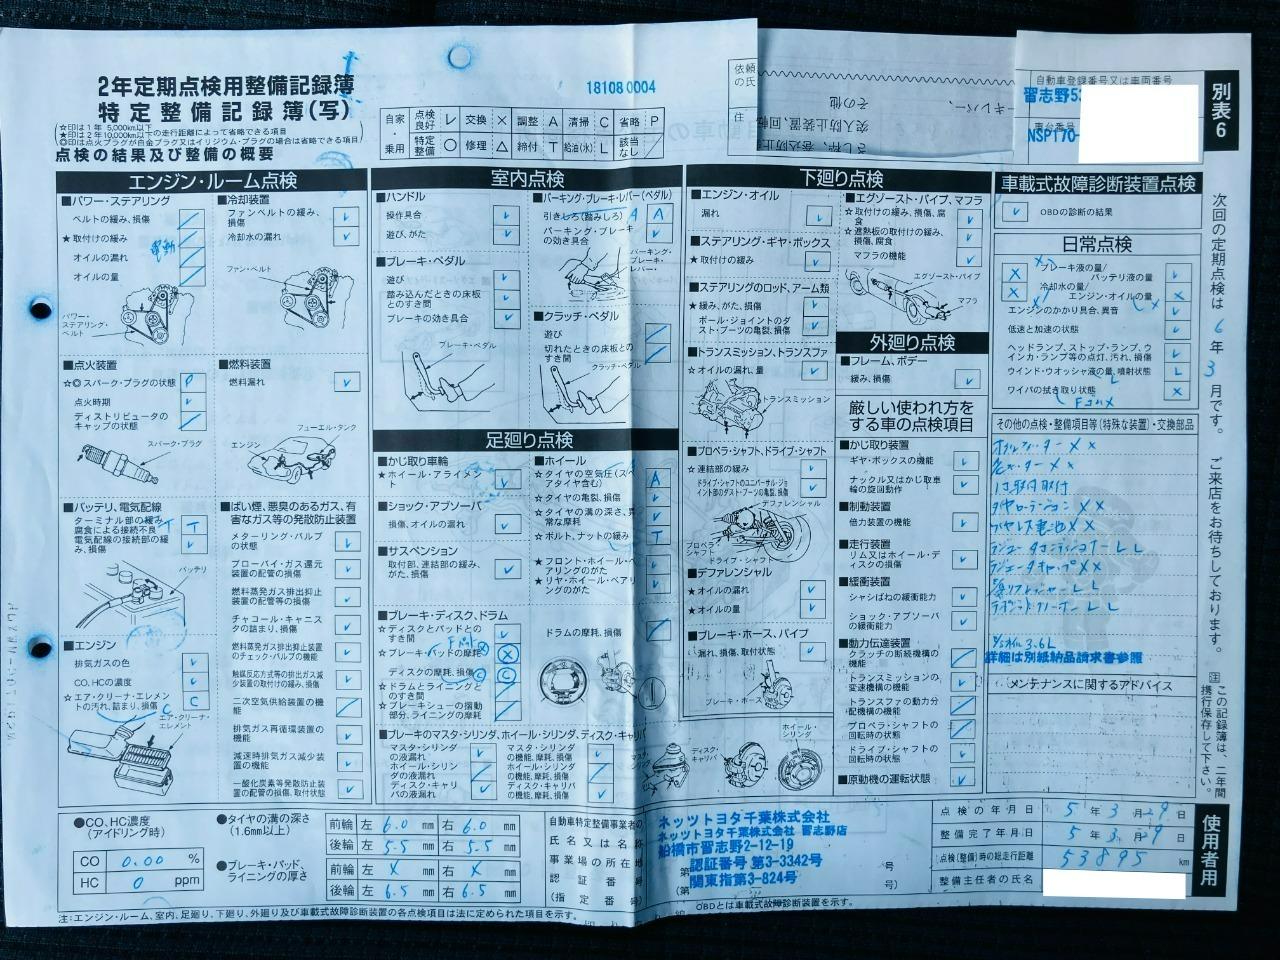 2年定期点検用整備記録簿
特定整備記録簿(写)
☆印は1年 5,000km以下
★印は2年10,000km以下の走行距離によって省略できる項目
点検の結果及び整備の概要
181080004
自家・乗用
点検良好 レ 交換 × 調整 A 清掃 C 省略 P
特定整備 ○ 修理 △ 締付 T 給油(水) L 該当なし ／
依頼
の氏
住
その他
自動車登録番号又は車両番号
習志野53
車台番号
NSP170-
別表6
エンジン・ルーム点検
■パワー・ステアリング
ベルトの緩み、損傷
★取付けの緩み
電動
オイルの漏れ
オイルの量
パワー・ステアリング・ベルト
■冷却装置
ファンベルトの緩み、損傷
冷却水の漏れ
ファン・ベルト
■点火装置
☆◎スパーク・プラグの状態 P
点火時期
ディストリビュータのキャップの状態
スパーク・プラグ
■燃料装置
燃料漏れ
フューエル・タンク
エンジン
■バッテリ、電気配線
ターミナル部の緩み、腐食による接続不良 T
電気配線の接続部の緩み、損傷
バッテリ
■エンジン
排気ガスの色
CO、HCの濃度
☆エア・クリーナ・エレメントの汚れ、詰まり、損傷 C
エア・クリーナ・エレメント
■ばい煙、悪臭のあるガス、有害なガス等の発散防止装置
メターリング・バルブの状態
ブローバイ・ガス還元装置の配管の損傷
燃料蒸発ガス排出抑止装置の配管等の損傷
チャコール・キャニスタの詰まり、損傷
燃料蒸発ガス排出抑止装置のチェック・バルブの機能
触媒反応方式等の排出ガス減少装置の取付けの緩み、損傷
二次空気供給装置の機能
排気ガス再循環装置の機能
減速時排気ガス減少装置の機能
一酸化炭素等発散防止装置の配管の損傷、取付状態
室内点検
■ハンドル
操作具合
遊び、がた
■ブレーキ・ペダル
遊び
踏み込んだときの床板とのすき間
ブレーキの効き具合
ブレーキ・ペダル
■パーキング・ブレーキ・レバー(ペダル)
引きしろ(踏みしろ) A
パーキング・ブレーキの効き具合
パーキング・ブレーキ・レバー
■クラッチ・ペダル
遊び
切れたときの床板とのすき間
クラッチ・ペダル
足廻り点検
■かじ取り車輪
★ホイール・アライメント
■ショック・アブソーバ
損傷、オイルの漏れ
■サスペンション
取付部、連結部の緩み、がた、損傷
■ホイール
☆タイヤの空気圧(スペアタイヤ含む) A
☆タイヤの亀裂、損傷
☆タイヤの溝の深さ、異常な摩耗
☆ボルト、ナットの緩み T
★フロント・ホイール・ベアリングのがた
★リヤ・ホイール・ベアリングのがた
■ブレーキ・ディスク、ドラム
☆ディスクとパッドとのすき間
☆ブレーキ・パッドの摩耗
ディスクの摩耗、損傷
☆ドラムとライニングとのすき間
☆ブレーキシューの摺動部分、ライニングの摩耗
ドラムの摩耗、損傷
■ブレーキのマスタ・シリンダ、ホイール・シリンダ、ディスク・キャリパ
マスタ・シリンダの液漏れ
ホイール・シリンダの液漏れ
ディスク・キャリパの液漏れ
マスタ・シリンダの機能、摩耗、損傷
ホイール・シリンダの機能、摩耗、損傷
ディスク・キャリパの機能、摩耗、損傷
ディスク・キャリパ
ホイール・シリンダ
下廻り点検
■エンジン・オイル
漏れ
■ステアリング・ギヤ・ボックス
★取付けの緩み
■ステアリングのロッド、アーム類
★緩み、がた、損傷
ボール・ジョイントのダスト・ブーツの亀裂、損傷
■トランスミッション、トランスファ
☆オイルの漏れ、量
トランスミッション
■プロペラ・シャフト、ドライブ・シャフト
☆連結部の緩み
ドライブ・シャフトのユニバーサル・ジョイント部のダスト・ブーツの亀裂、損傷
デファレンシャル
プロペラ・シャフト
ドライブ・シャフト
■デファレンシャル
★オイルの漏れ
★オイルの量
■ブレーキ・ホース、パイプ
漏れ、損傷、取付状態
ブレーキ・ホース
■エグゾースト・パイプ、マフラ
☆取付けの緩み、損傷、腐食
☆遮熱板の取付けの緩み、損傷、腐食
マフラの機能
エグゾースト・パイプ
マフラ
外廻り点検
■フレーム、ボデー
緩み、損傷
厳しい使われ方をする車の点検項目
■かじ取り装置
ギヤ・ボックスの機能
ナックル又はかじ取車輪の旋回動作
■制動装置
倍力装置の機能
■走行装置
リム又はホイール・ディスクの損傷
■緩衝装置
シャシばねの緩衝能力
ショック・アブソーバの緩衝能力
■動力伝達装置
クラッチの断続機構の機能
トランスミッションの変速機構の機能
トランスファの動力分配機構の機能
プロペラ・シャフトの回転時の状態
ドライブ・シャフトの回転時の状態
■原動機の運転状態
車載式故障診断装置点検
OBDの診断の結果
日常点検
ブレーキ液の量
バッテリ液の量
冷却水の量
エンジン・オイルの量
エンジンのかかり具合、異音
低速と加速の状態
ヘッドランプ、ストップ・ランプ、ウインカ・ランプ等の点灯、汚れ、損傷
ウインド・ウオッシャ液の量、噴射状態 L
ワイパの拭き取り状態
その他の点検・整備項目等(特殊な装置)・交換部品
詳細は別紙納品請求書参照
メンテナンスに関するアドバイス
次回の定期点検は 6 年 3 月です。 ご来店をお待ちしております。
注 この記録簿は、二年間携行保存して下さい。
使用者用
●CO、HC濃度
(アイドリング時)
CO 0.00 %
HC 0 ppm
●タイヤの溝の深さ
(1.6mm以上)
前輪 左 6.0 mm 右 6.0 mm
後輪 左 5.5 mm 右 5.5 mm
●ブレーキ・パッド、ライニングの厚さ
前輪 左 X mm 右 X mm
後輪 左 6.5 mm 右 6.5 mm
自動車特定整備事業者の
氏名又は名称
事業場の所在地
認証番号
(指定番号)
ネッツトヨタ千葉株式会社
ネッツトヨタ千葉株式会社 習志野店
船橋市習志野2-12-19
認証番号 第3-3342号
関東指第3-824号
点検の年月日 5 年 3 月 29 日
整備完了年月日 5 年 3 月 29 日
点検(整備)時の総走行距離 53895 km
整備主任者の氏名
注:エンジン・ルーム、室内、足廻り、下廻り、外廻り及び車載式故障診断装置の各点検項目は法に定められた項目を示す。
OBDとは車載式故障診断装置を示す。